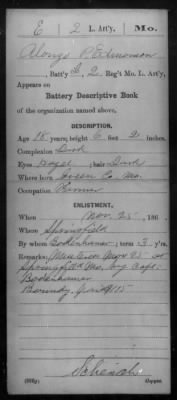 E 2 L. Art'y. Mo.
Alonzo P. Edmonson
, Batt'y I, 2 Reg't Mo. L. Art'y,
Appears on
Battery Descriptive Book
of the organization named above.
DESCRIPTION.
Age 18 years; height 6 feet 2 inches.
Complexion Dark
Eyes Hazel ; hair Dark
Where born Green Co. Mo.
Occupation Farmer
ENLISTMENT.
When Nov. 25 , 186 .
Where Springfield
By whom Bodenhamer ; term 3 y'rs.
Remarks: Nov 25 at
Springfield Mo. by Capt.
Bodenhamer
Bounty
Schenck
Copyist.